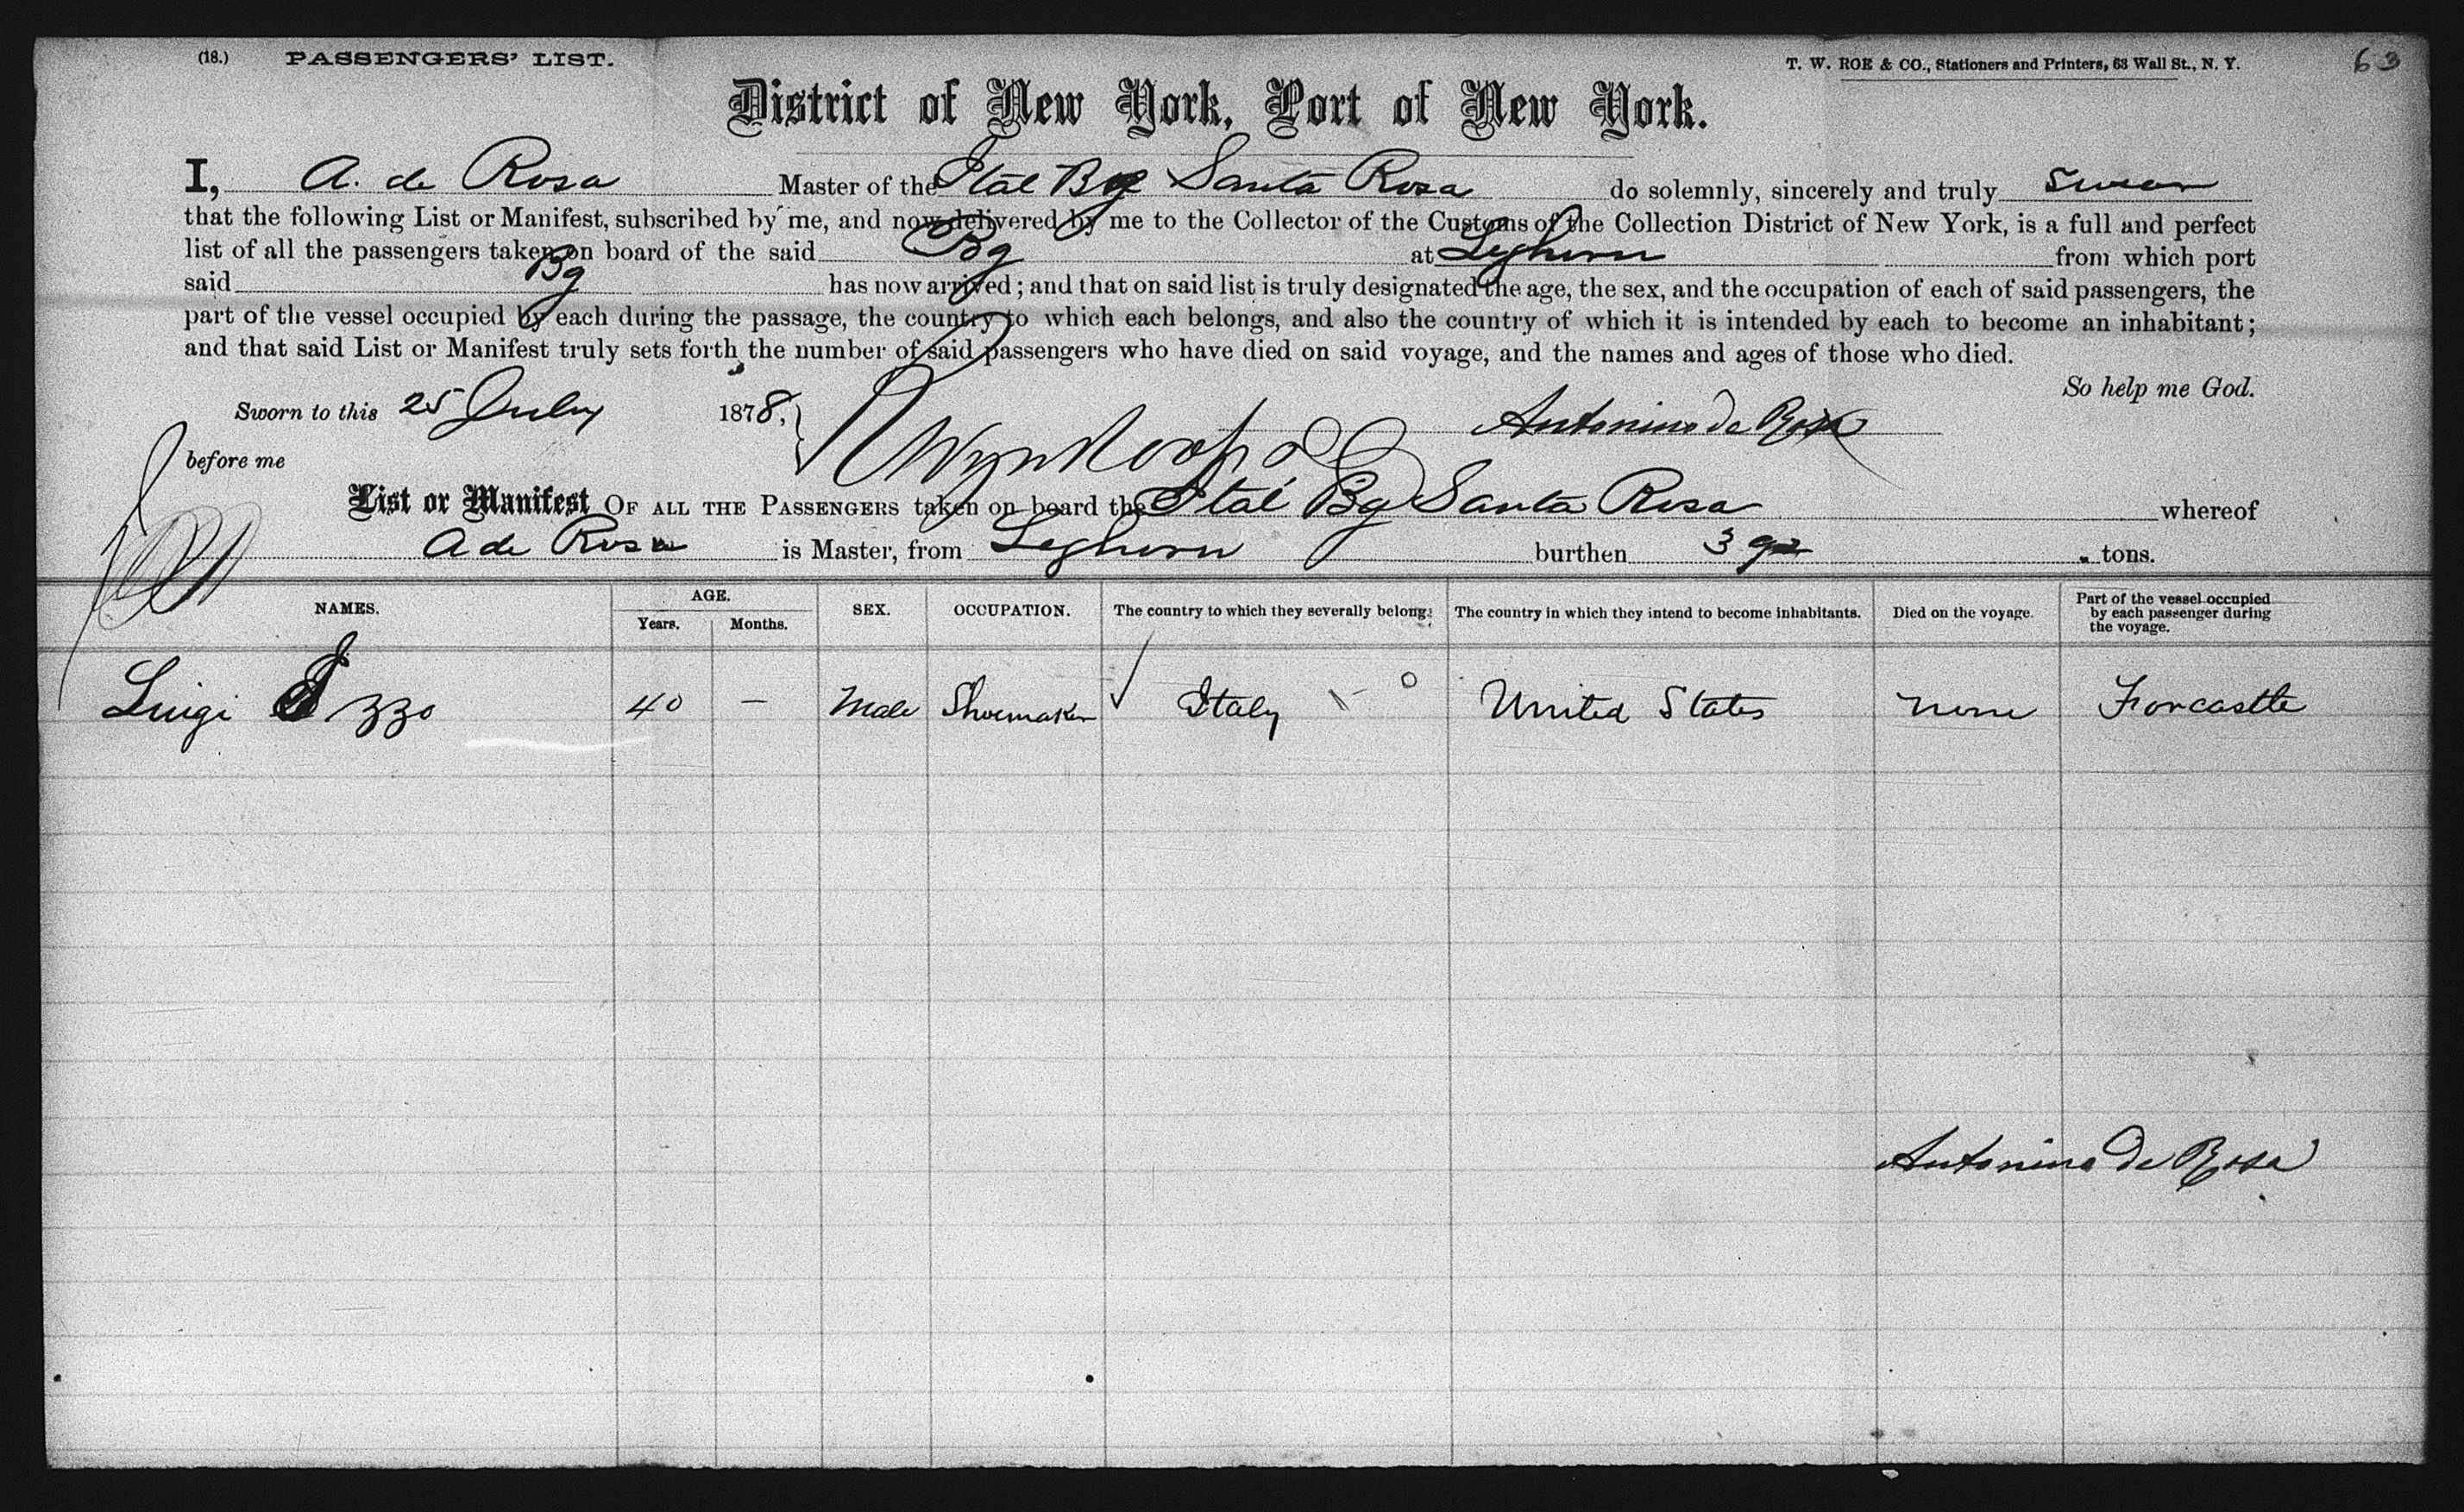 (18.) PASSENGERS' LIST. T. W. ROE & CO., Stationers and Printers, 63 Wall St., N. Y. 63
District of New York, Port of New York.
I, A. de Rosa Master of the Ital Bg Santa Rosa do solemnly, sincerely and truly swear
that the following List or Manifest, subscribed by me, and now delivered by me to the Collector of the Customs of the Collection District of New York, is a full and perfect
list of all the passengers taken on board of the said Bg at Leghorn from which port
said Bg has now arrived; and that on said list is truly designated the age, the sex, and the occupation of each of said passengers, the
part of the vessel occupied by each during the passage, the country to which each belongs, and also the country of which it is intended by each to become an inhabitant;
and that said List or Manifest truly sets forth the number of said passengers who have died on said voyage, and the names and ages of those who died.
So help me God.
Sworn to this 25 July 1878, Antonino de Rosa
before me
List or Manifest OF ALL THE PASSENGERS taken on board the Ital Bg Santa Rosa whereof
A de Rosa is Master, from Leghorn burthen 392 tons.
NAMES. AGE. Years. Months. SEX. OCCUPATION. The country to which they severally belong. The country in which they intend to become inhabitants. Died on the voyage. Part of the vessel occupied by each passenger during the voyage.
Luigi Izzo 40 — Male Shoemaker Italy United States none Forcastle
Antonino de Rosa